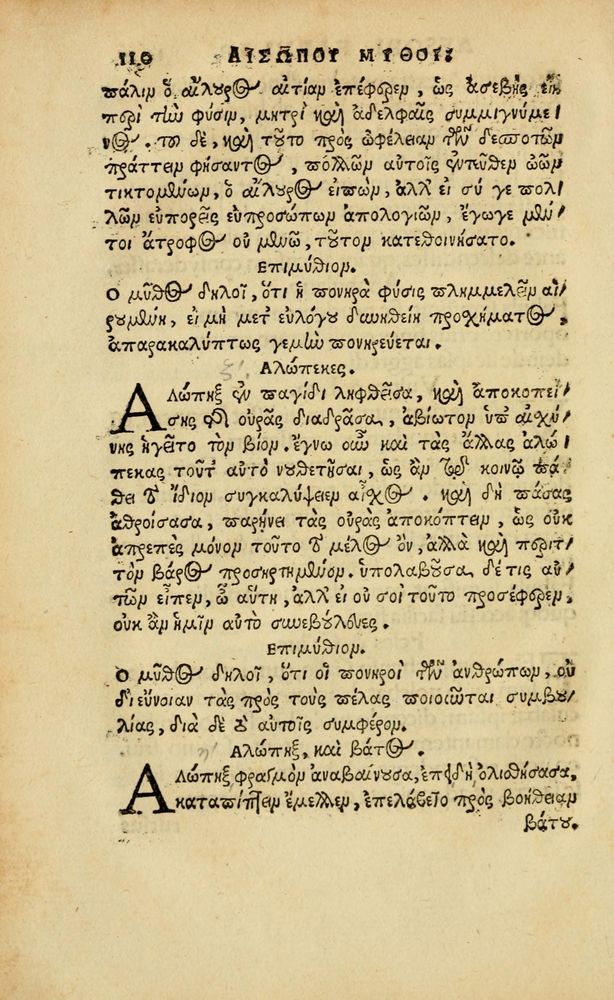 110 ΑΙΣΩΠΟΥ ΜΥΘΟΙ.
πάλιν ὁ αἴλουρος αἰτίαν ἐπέφερεν, ὡς ἀσεβὴς εἴη
περὶ τὴν φύσιν, μητρὶ καὶ ἀδελφαῖς συμμιγνύμε
νος. τοῦ δὲ, καὶ τοῦτο πρὸς ὠφέλειαν τῶν δεσποτῶν
πράττειν φήσαντος, πολλῶν αὐτοῖς ἐντεῦθεν ὠῶν
τικτομένων, ὁ αἴλουρος εἰπὼν, ἀλλ' εἰ σύ γε πολ/
λῶν εὐπορεῖς εὐπροσώπων ἀπολογιῶν, ἔγωγε μέν/
τοι ἄτροφος οὐ μενῶ, τοῦτον κατεθοινήσατο.
Επιμύθιον.
Ο μῦθος δηλοῖ, ὅτι ἡ πονηρὰ φύσις πλημμελεῖν αἱ
ρουμένη, εἰ μὴ μετ' εὐλόγου δυνηθείη προσχήματος,
ἀπαρακαλύπτως γε μὴν πονηρεύεται.
Αλώπεκες.
Αλώπηξ ἐν παγίδι ληφθεῖσα, καὶ ἀποκοπεί/
σης τῆς οὐρᾶς διαδρᾶσα, ἀβίωτον ὑπ' αἰσχύ/
νης ἡγεῖτο τὸν βίον. ἔγνω οὖν καὶ τὰς ἄλλας ἀλώ/
πεκας τοῦτ' αὐτὸ νουθετῆσαι, ὡς ἂν τῷ κοινῷ πά/
θει τὸ ἴδιον συγκαλύψειεν αἶσχος. καὶ δὴ πάσας
ἀθροίσασα, παρῄνει τὰς οὐρὰς ἀποκόπτειν, ὡς οὐκ
ἀπρεπὲς μόνον τοῦτο τὸ μέλος ὂν, ἀλλὰ καὶ περιτ/
τὸν βάρος προσηρτημένον. ὑπολαβοῦσα δέ τις αὐ/
τῶν εἶπεν, ὦ αὕτη, ἀλλ' εἰ οὐ σοὶ τοῦτο προσέφερεν,
οὐκ ἂν ἡμῖν αὐτὸ συνεβούλευες.
Επιμύθιον.
Ο μῦθος δηλοῖ, ὅτι οἱ πονηροὶ τῶν ἀνθρώπων, οὐ
δι' εὔνοιαν τὰς πρὸς τοὺς πέλας ποιοῦνται συμβου/
λίας, διὰ δὲ τὸ αὐτοῖς συμφέρον.
Αλώπηξ, καὶ βάτος.
Αλώπηξ φραγμὸν ἀναβαίνουσα, ἐπειδὴ ὀλισθήσασα,
καταπίπτειν ἔμελλεν, ἐπελάβετο πρὸς βοήθειαν
βάτου.